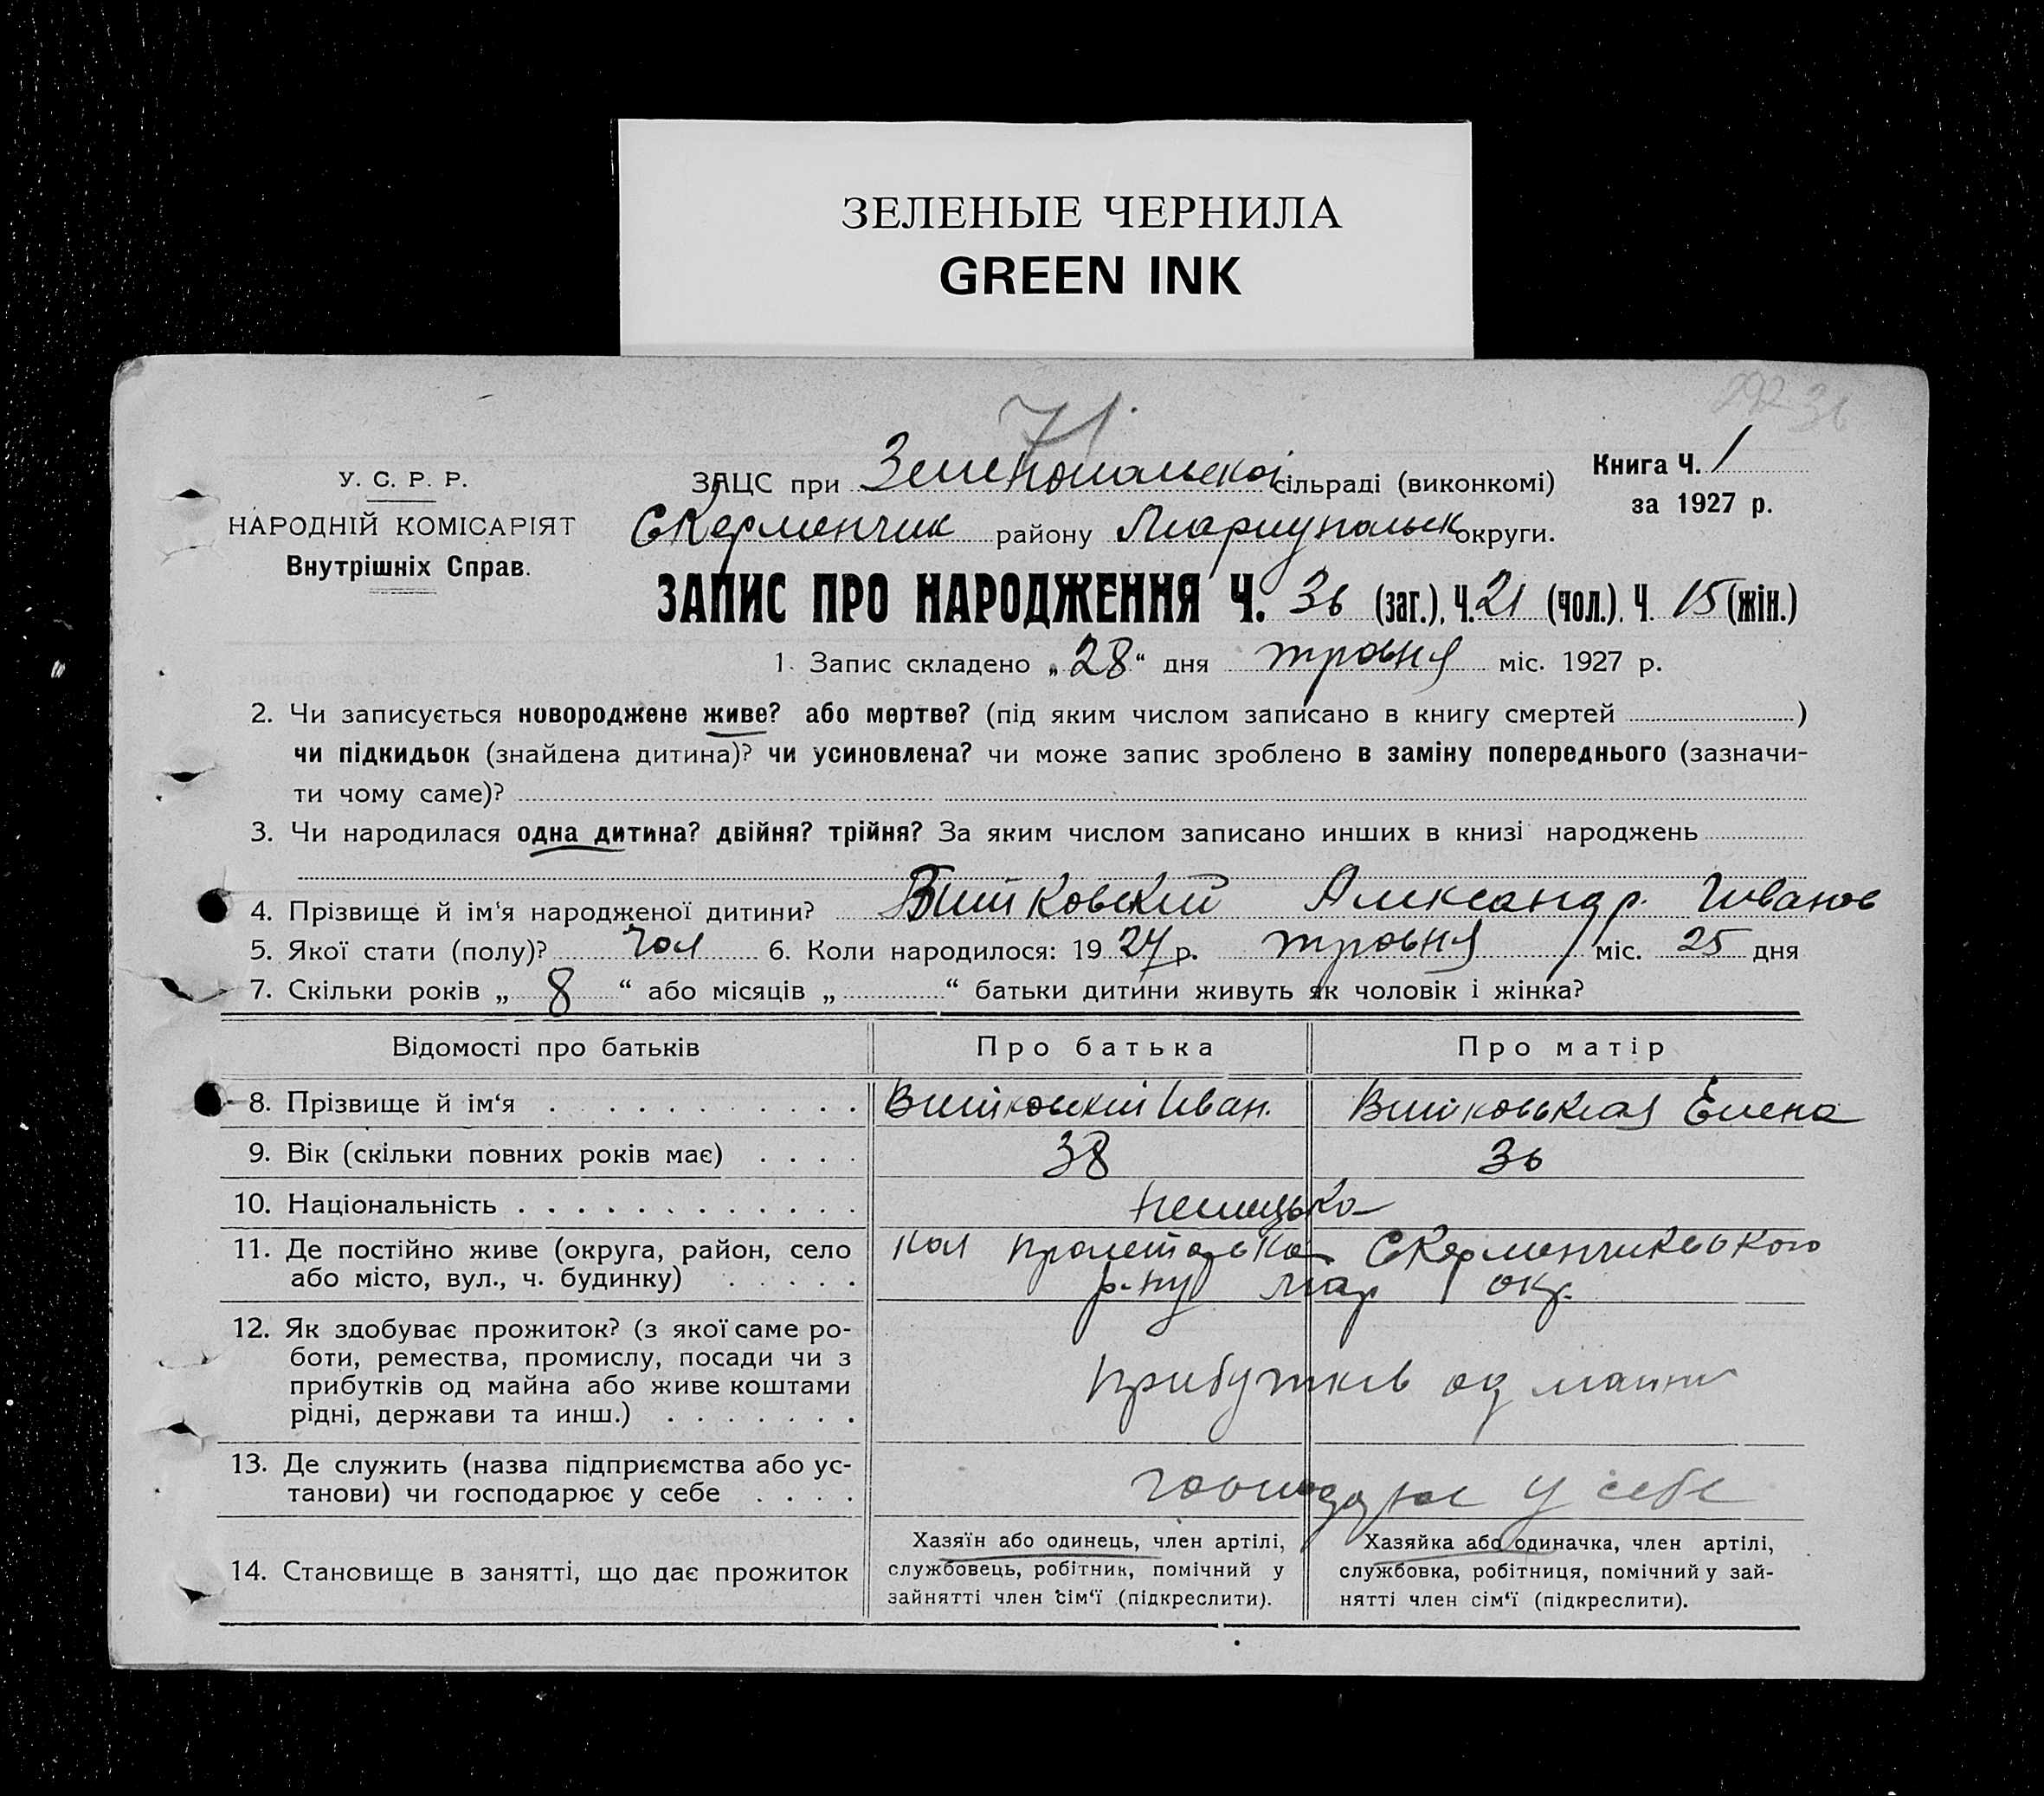 ЗЕЛЕНЫЕ ЧЕРНИЛА
GREEN INK
71
36
У. С. Р. Р.
НАРОДНІЙ КОМІСАРІЯТ
Внутрішніх Справ.
ЗАЦС при Зеленопольской сільраді (виконкомі)
Книга Ч. 1
за 1927 р.
СКерменчик району Мариупольск округи.
ЗАПИС ПРО НАРОДЖЕННЯ Ч. 36 (заг.), Ч. 21 (чол.). Ч. 15 (жін.)
1. Запис складено „28“ дня травня міс. 1927 р.
2. Чи записується новороджене живе? або мертве? (під яким числом записано в книгу смертей )
чи підкидьок (знайдена дитина)? чи усиновлена? чи може запис зроблено в заміну попереднього (зазначи-
ти чому саме)?
3. Чи народилася одна дитина? двійня? трійня? За яким числом записано инших в книзі народжень
4. Прізвище й ім'я народженої дитини? Витковский Александр Иванов
5. Якої стати (полу)? чол 6. Коли народилося: 1927 р. травня міс. 25 дня
7. Скільки років „ 8 “ або місяців „ “ батьки дитини живуть як чоловік і жінка?
Відомості про батьків Про батька Про матір
8. Прізвище й ім‘я Витковский Иван. Витковская Елена
9. Вік (скільки повних років має) 38 36
10. Національність немицька
11. Де постійно живе (округа, район, село кол СКерменчикського
або місто, вул., ч. будинку) р-ну Мар окр.
12. Як здобуває прожиток? (з якої саме ро-
боти, ремества, промислу, посади чи з
прибутків од майна або живе коштами прибутків од майна
рідні, держави та инш.)
13. Де служить (назва підприємства або ус-
танови) чи господарює у себе господарює у себе
14. Становище в занятті, що дає прожиток
Хазяїн або одинець, член артілі,
службовець, робітник, помічний у
зайнятті член сім‘ї (підкреслити).
Хазяйка або одиначка, член артілі,
службовка, робітниця, помічний у зай-
нятті член сім‘ї (підкреслити).